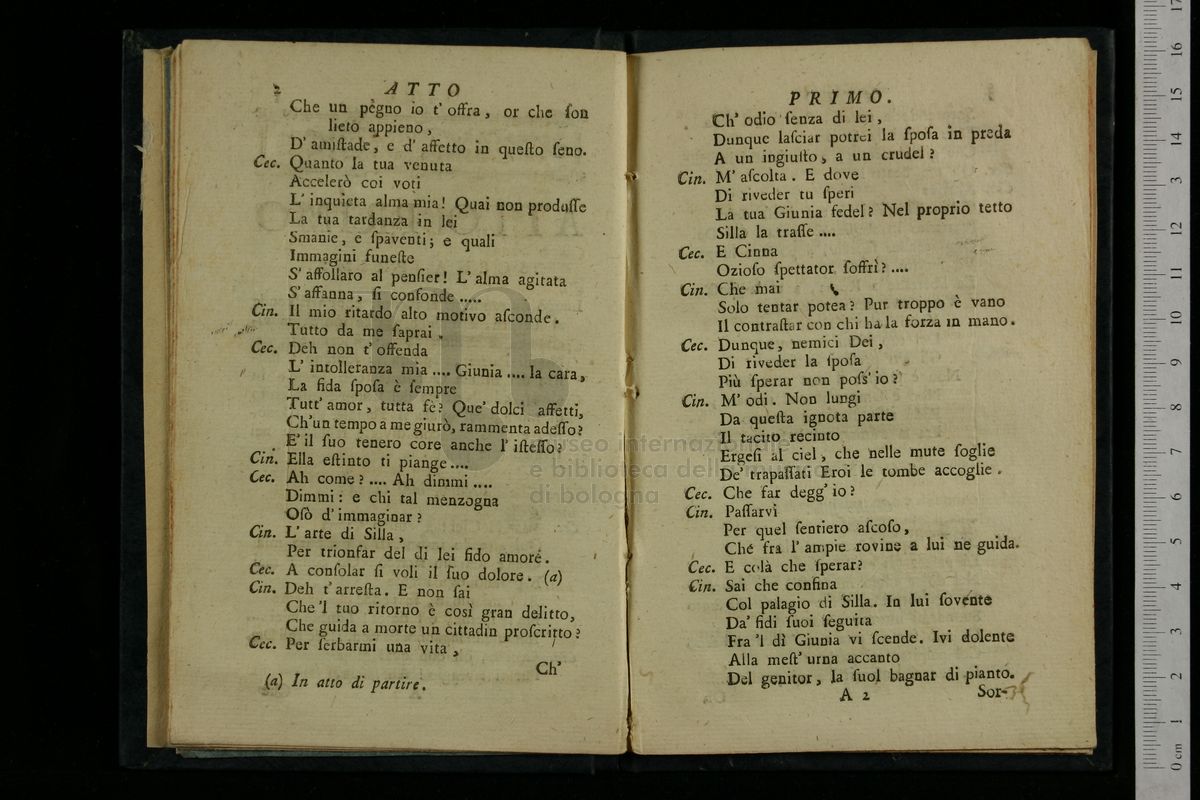 2 ATTO
Che un pègno io t' offra, or che ſon
lieto appieno,
D' amiſtade, e d' affetto in queſto ſeno.
Cec. Quanto la tua venuta
Accelerò coi voti
L' inquieta alma mia! Quai non produſſe
La tua tardanza in lei
Smanie, e ſpaventi; e quali
Immagini funeſte
S' affollaro al penſier! L' alma agitata
S' affanna, ſi confonde .....
Cin. Il mio ritardo alto motivo aſconde.
Tutto da me ſaprai.
Cec. Deh non t' offenda
L' intolleranza mia .... Giunia .... la cara,
La fida ſpoſa è ſempre
Tutt' amor, tutta fè? Que' dolci affetti,
Ch' un tempo a me giurò, rammenta adeſſo?
E' il ſuo tenero core anche l' iſteſſo?
Cin. Ella eſtinto ti piange....
Cec. Ah come? .... Ah dimmi ....
Dimmi: e chi tal menzogna
Osò d' immaginar?
Cin. L' arte di Silla,
Per trionfar del di lei fido amore.
Cec. A conſolar ſi voli il ſuo dolore. (a)
Cin. Deh t' arreſta. E non ſai
Che 'l tuo ritorno è così gran delitto,
Che guida a morte un cittadin proſcritto?
Cec. Per ſerbarmi una vita,
Ch'
(a) In atto di partire.
PRIMO.
Ch' odio ſenza di lei,
Dunque laſciar potrei la ſpoſa in preda
A un ingiuſto, a un crudel?
Cin. M' aſcolta. E dove
Di riveder tu ſperi
La tua Giunia fedel? Nel proprio tetto
Silla la traſſe ....
Cec. E Cinna
Ozioſo ſpettator ſoffrì? ....
Cin. Che mai
Solo tentar potea? Pur troppo è vano
Il contraſtar con chi ha la forza in mano.
Cec. Dunque, nemici Dei,
Di riveder la ſpoſa
Più ſperar non poſs' io?
Cin. M' odi. Non lungi
Da queſta ignota parte
Il tacito recinto
Ergeſi al ciel, che nelle mute ſoglie
De' trapaſſati Eroi le tombe accoglie.
Cec. Che far degg' io?
Cin. Paſſarvi
Per quel ſentiero aſcoſo,
Ché fra l' ampie rovine a lui ne guida.
Cec. E colà che ſperar?
Cin. Sai che confina
Col palagio di Silla. In lui ſovente
Da' fidi ſuoi ſeguita
Fra 'l dì Giunia vi ſcende. Ivi dolente
Alla meſt' urna accanto
Del genitor, la ſuol bagnar di pianto.
A 2 Sor-
museo internazionale
e biblioteca della musica
di bologna
0 cm 1 2 3 4 5 6 7 8 9 10 11 12 13 14 15 16 17